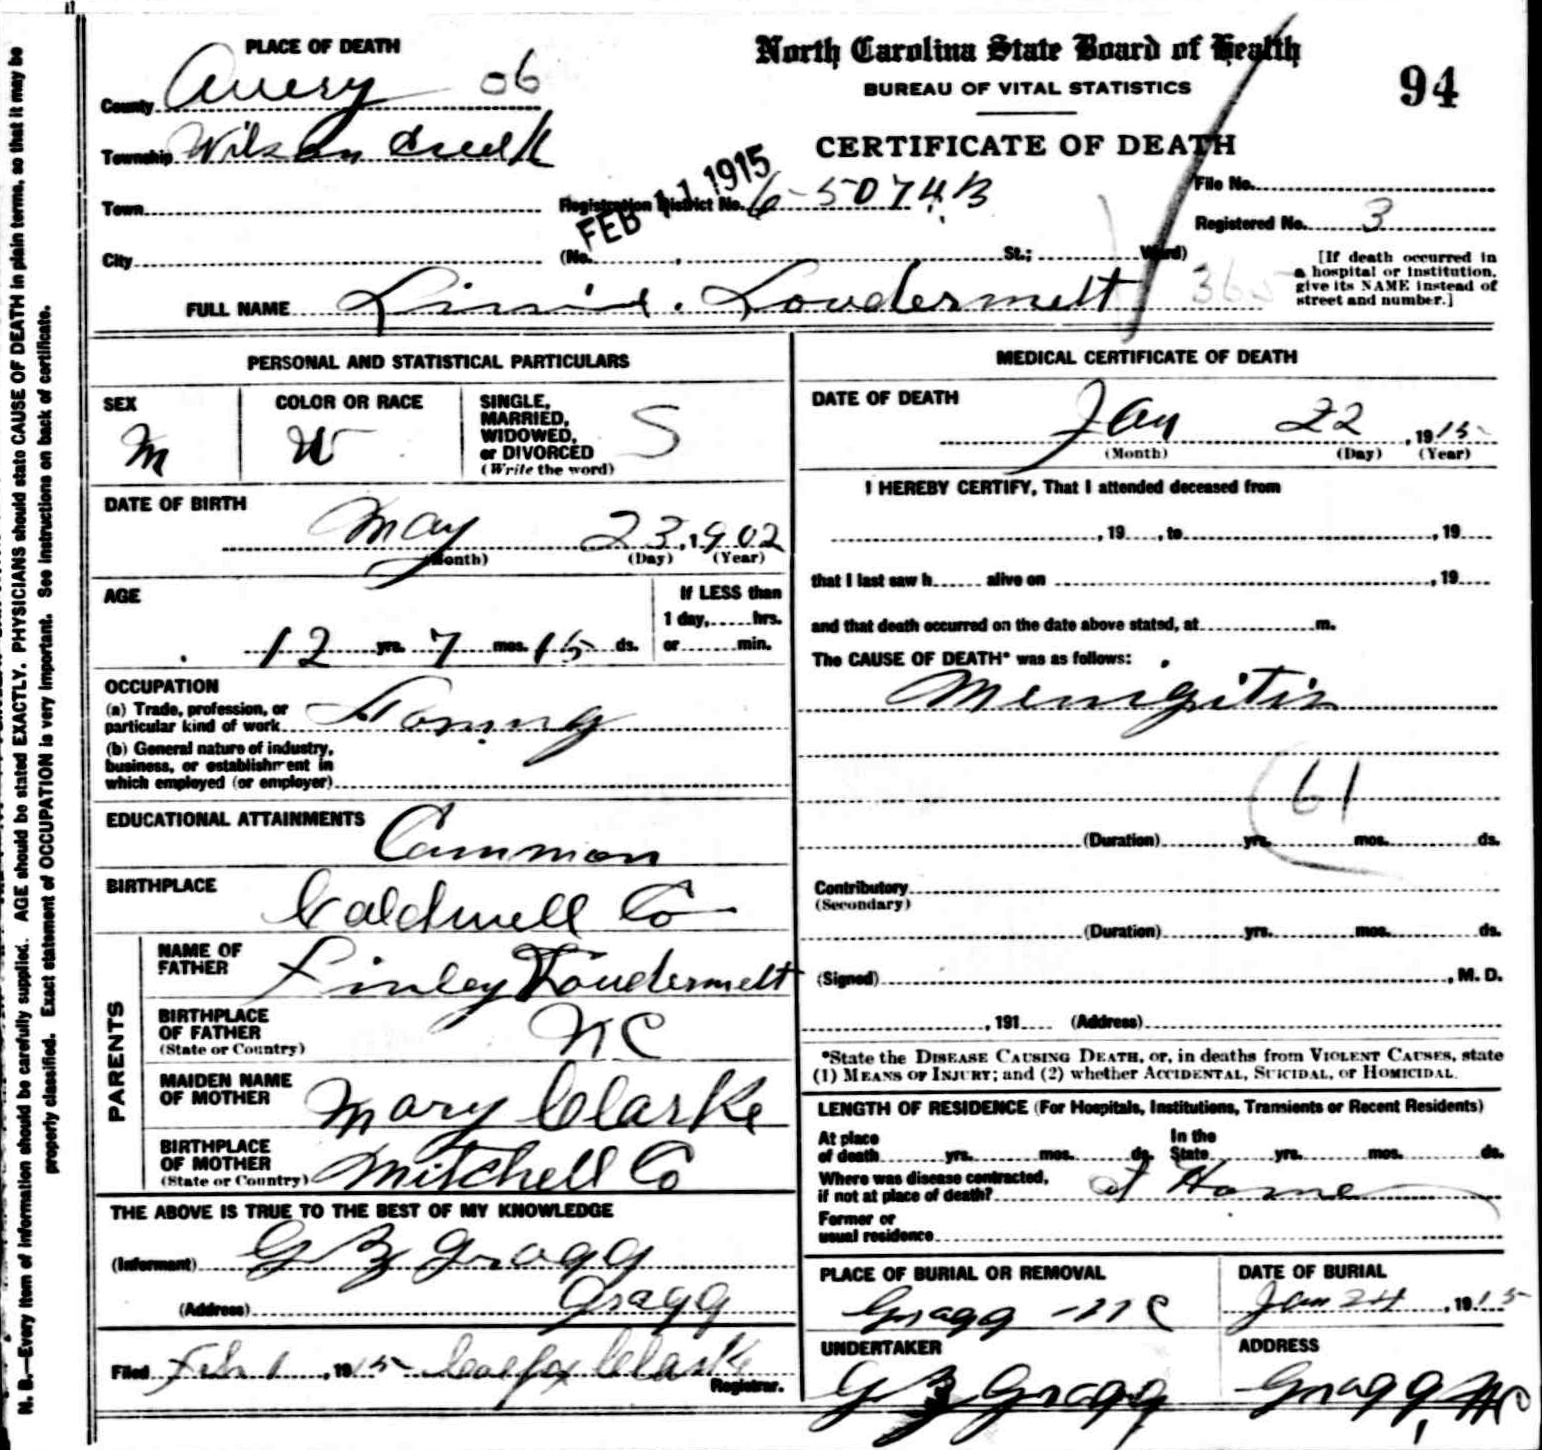 PLACE OF DEATH
County Avery 06
Township Wilson Creek
Town
City
North Carolina State Board of Health
BUREAU OF VITAL STATISTICS
CERTIFICATE OF DEATH
94
FEB 11 1915
Registration District No. 6-5074B
File No.
Registered No. 3
(No. , St.; Ward)
[If death occurred in
a hospital or institution,
give its NAME instead of
street and number.]
FULL NAME Loudermelt 365
PERSONAL AND STATISTICAL PARTICULARS
SEX
M
COLOR OR RACE
W
SINGLE,
MARRIED,
WIDOWED,
or DIVORCED
(Write the word)
S
DATE OF BIRTH
May 23, 1902
(Month) (Day) (Year)
AGE
12 yrs. 7 mos. 15 ds.
If LESS than
1 day, hrs.
or min.
OCCUPATION
(a) Trade, profession, or
particular kind of work
(b) General nature of industry,
business, or establishment in
which employed (or employer)
EDUCATIONAL ATTAINMENTS
Common
BIRTHPLACE
Caldwell Co
PARENTS
NAME OF
FATHER
Finley Loudermelt
BIRTHPLACE
OF FATHER
(State or Country)
NC
MAIDEN NAME
OF MOTHER
Mary Clarke
BIRTHPLACE
OF MOTHER
(State or Country)
Mitchell Co
THE ABOVE IS TRUE TO THE BEST OF MY KNOWLEDGE
(Informant) G B Gragg
(Address) Gragg
Filed Feb 1, 1915 Clark
Registrar.
MEDICAL CERTIFICATE OF DEATH
DATE OF DEATH
Jan 22, 1915
(Month) (Day) (Year)
I HEREBY CERTIFY, That I attended deceased from
, 19 , to , 19
that I last saw h alive on , 19
and that death occurred on the date above stated, at m.
The CAUSE OF DEATH* was as follows:
Menigitis
61
(Duration) yrs. mos. ds.
Contributory
(Secondary)
(Duration) yrs. mos. ds.
(Signed) , M. D.
, 191 (Address)
*State the DISEASE CAUSING DEATH, or, in deaths from VIOLENT CAUSES, state
(1) MEANS OF INJURY; and (2) whether ACCIDENTAL, SUICIDAL, or HOMICIDAL.
LENGTH OF RESIDENCE (For Hospitals, Institutions, Transients or Recent Residents)
At place
of death yrs. mos. ds.
In the
State yrs. mos. ds.
Where was disease contracted,
if not at place of death? at Home
Former or
usual residence
PLACE OF BURIAL OR REMOVAL
Gragg NC
DATE OF BURIAL
Jan 24, 1915
UNDERTAKER
G B Gragg
ADDRESS
Gragg, NC
N. B.—Every item of information should be carefully supplied. AGE should be stated EXACTLY. PHYSICIANS should state CAUSE OF DEATH in plain terms, so that it may be
properly classified. Exact statement of OCCUPATION is very important. See instructions on back of certificate.